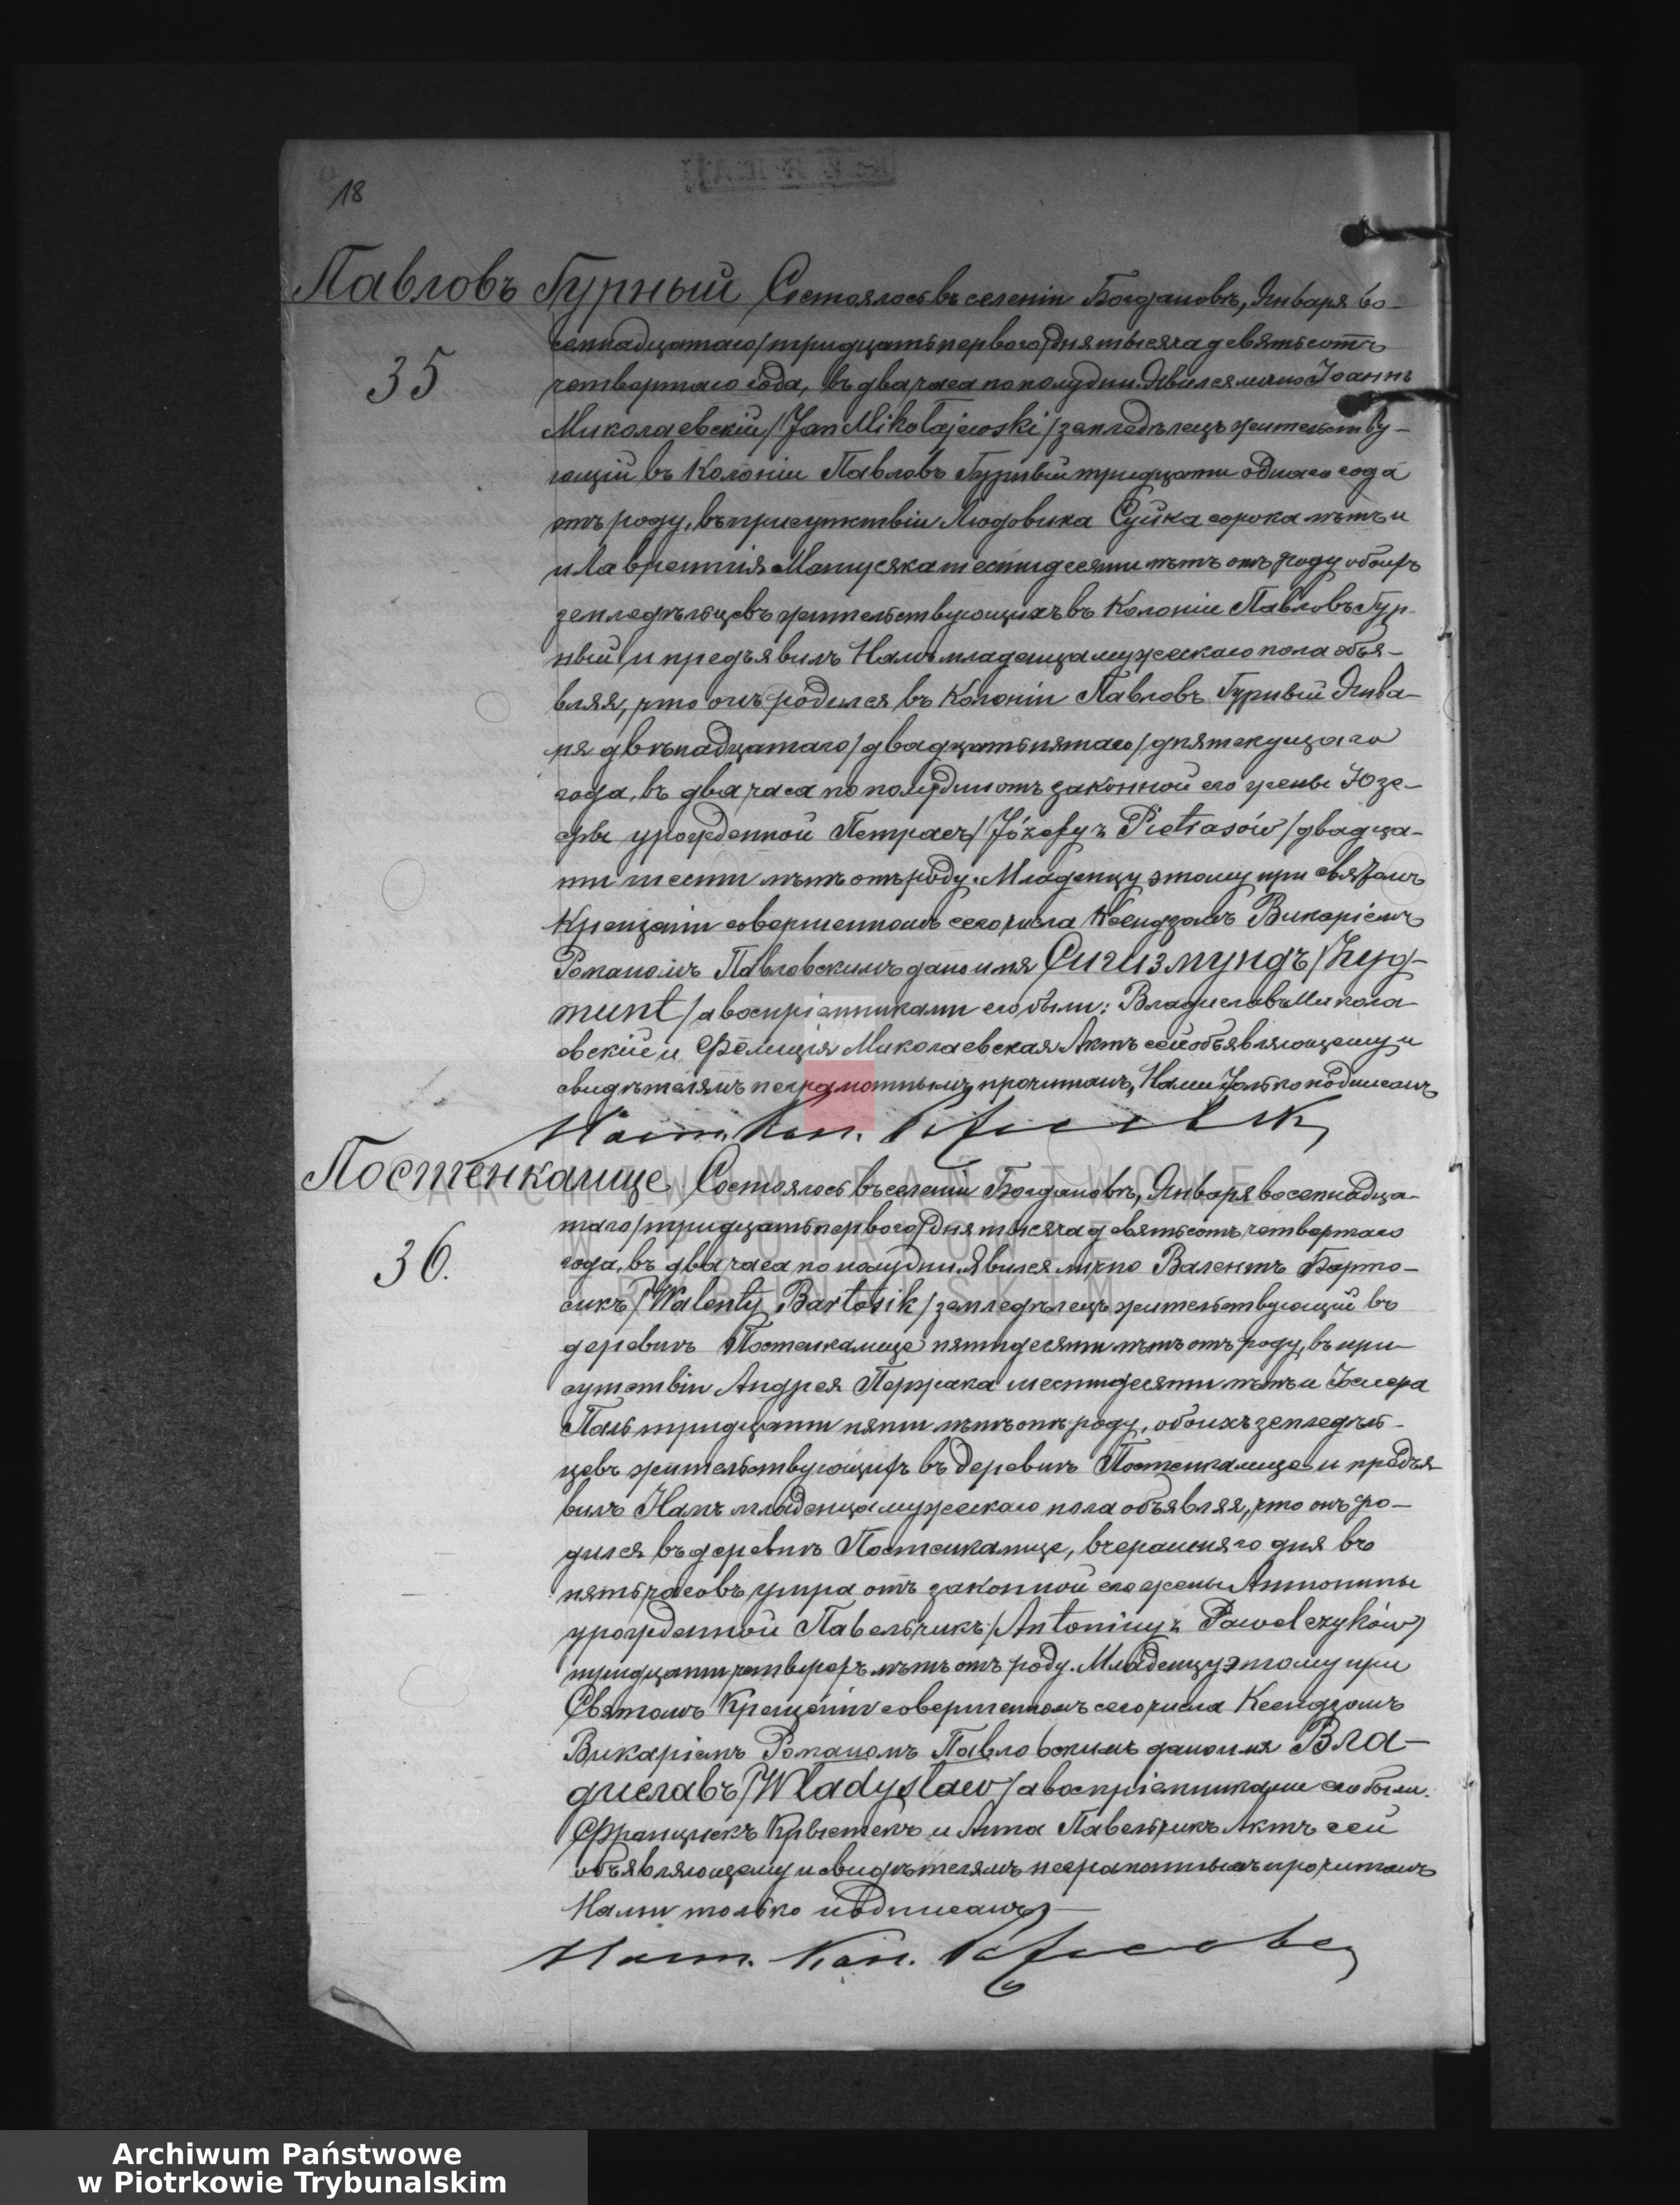 18
Павловъ Гурный Состоялось въ селеніи Богдановъ, Января во-
35
семнадцатаго/тридцать перваго/дня тысяча девятьсотъ
четвертаго года, въ два часа по полудни. Явился лично Іоаннъ
Миколаевскій/Jan Mikołajewski/земледѣлецъ жительству-
ющій въ Колоніи Павловъ Гурный тридцати одного года
отъ роду, въ присутствіи Людовика Суйка сорока лѣтъ и
и Лаврентія Матусяка шестидесяти лѣтъ отъ роду обоихъ
земледѣльцевъ жительствующихъ въ Колоніи Павловъ Гур-
ный и предъявилъ Намъ младенца мужескаго пола объя-
вляя, что онъ родился въ Колоніи Павловъ Гурный Янва-
ря двѣнадцатаго/двадцать пятаго/дня текущаго
года, въ два часа по полудни отъ законной его жены Юзе-
фы урожденной Петрасъ/Józefy z Pietrasów/двадца-
ти шести лѣтъ отъ роду. Младенцу этому при святомъ
Крещеніи совершенномъ сего числа Ксендзомъ Викаріемъ
Романомъ Павловскимъ дано имя Сигизмундъ/Zyg-
munt/а воспріемниками его были: Владиславъ Микола-
евскій и Фелиція Миколаевская Актъ сей объявляющему и
свидѣтелямъ неграмотнымъ прочитанъ, Нами только подписанъ
Постенкалице Состоялось въ селеніи Богдановъ, Января восемнадца-
36.
таго/тридцать перваго/дня тысяча девятьсотъ четвертаго
года, въ два часа по полудни. Явился лично Валентъ Барто-
сикъ/Walenty Bartosik/земледѣлецъ жительствующій въ
деревнѣ Постенкалице пятидесяти лѣтъ отъ роду, въ при-
сутствіи Андрея Пержака шестидесяти лѣтъ и
Паль тридцати пяти лѣтъ отъ роду, обоихъ земледѣль-
цевъ жительствующихъ въ деревнѣ Постенкалице и предъя-
вилъ Намъ младенца мужескаго пола объявляя, что онъ ро-
дился въ деревнѣ Постенкалице, вчерашняго дня въ
пять часовъ утра отъ законной его жены Антонины
урожденной Павельчикъ/Antoniny z Pawelczyków/
тридцати четырехъ лѣтъ отъ роду. Младенцу этому при
Святомъ Крещеніи совершенномъ сего числа Ксендзомъ
Викаріемъ Романомъ Павловскимъ дано имя Вла-
диславъ/Władysław/а воспріемниками его были:
Францискъ и Анна Павельчикъ Актъ сей
объявляющему и свидѣтелямъ неграмотнымъ прочитанъ
Нами только подписанъ
ARCHIWUM PAŃSTWOWE
W PIOTRKOWIE
TRYBUNALSKIM
Archiwum Państwowe
w Piotrkowie Trybunalskim